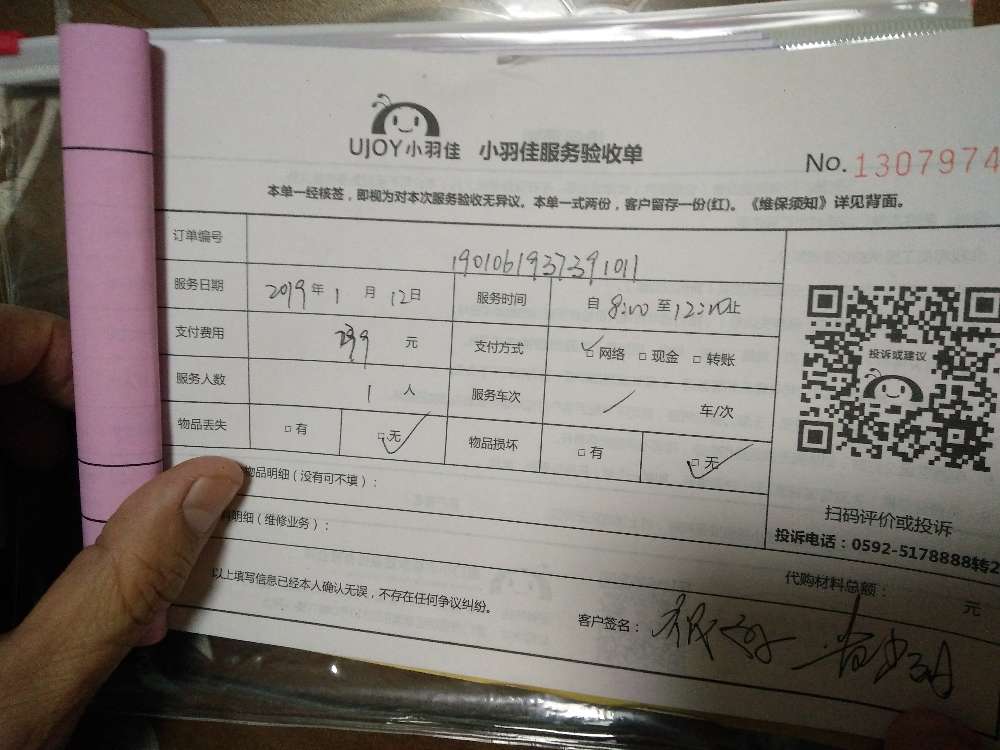 UJOY小羽佳 小羽佳服务验收单
No. 1307974
本单一经核签，即视为对本次服务验收无异议。本单一式两份，客户留存一份(红)。《维保须知》详见背面。
订单编号 1901061937391011
服务日期 2019年1月12日 服务时间 自8:00至12:00止
支付费用 元 支付方式 □网络 □现金 □转账
服务人数 1人 服务车次 / 车/次
物品丢失 □有 □无 物品损坏 □有 □无
物品明细（没有可不填）：
明细（维修业务）：
投诉或建议
扫码评价或投诉
投诉电话：0592-5178888转2
代购材料总额： 元
以上填写信息已经本人确认无误，不存在任何争议纠纷。
客户签名：